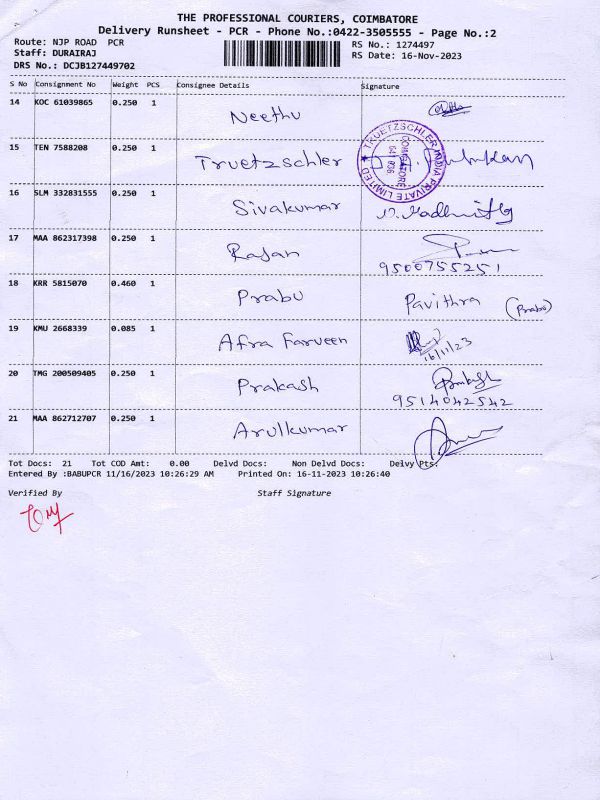 THE PROFESSIONAL COURIERS, COIMBATORE
Delivery Runsheet - PCR - Phone No.:0422-3505555 - Page No.:2
Route: NJP ROAD PCR
RS No.: 1274497
Staff: DURAIRAJ
RS Date: 16-Nov-2023
DRS No.: DCJB127449702
S No Consignment No Weight PCS Consignee Details Signature
14 KOC 61039865 0.250 1 Neethu
15 TEN 7588208 0.250 1 Truetzschler
TRUETZSCHLER INDIA PRIVATE LIMITED ★ COIMBATORE
16 SLM 332831555 0.250 1 Sivakumar
17 MAA 862317398 0.250 1 Rajan
9500755251
18 KRR 5815070 0.460 1 Prabu Pavithra (Prabu)
19 KMU 2668339 0.085 1 Afra Farveen
16/11/23
20 TMG 200509405 0.250 1 Prakash Prakash
9514042542
21 MAA 862712707 0.250 1 Arulkumar
Tot Docs: 21 Tot COD Amt: 0.00 Delvd Docs: Non Delvd Docs: Delvy Pts:
Entered By :BABUPCR 11/16/2023 10:26:29 AM Printed On: 16-11-2023 10:26:40
Verified By Staff Signature